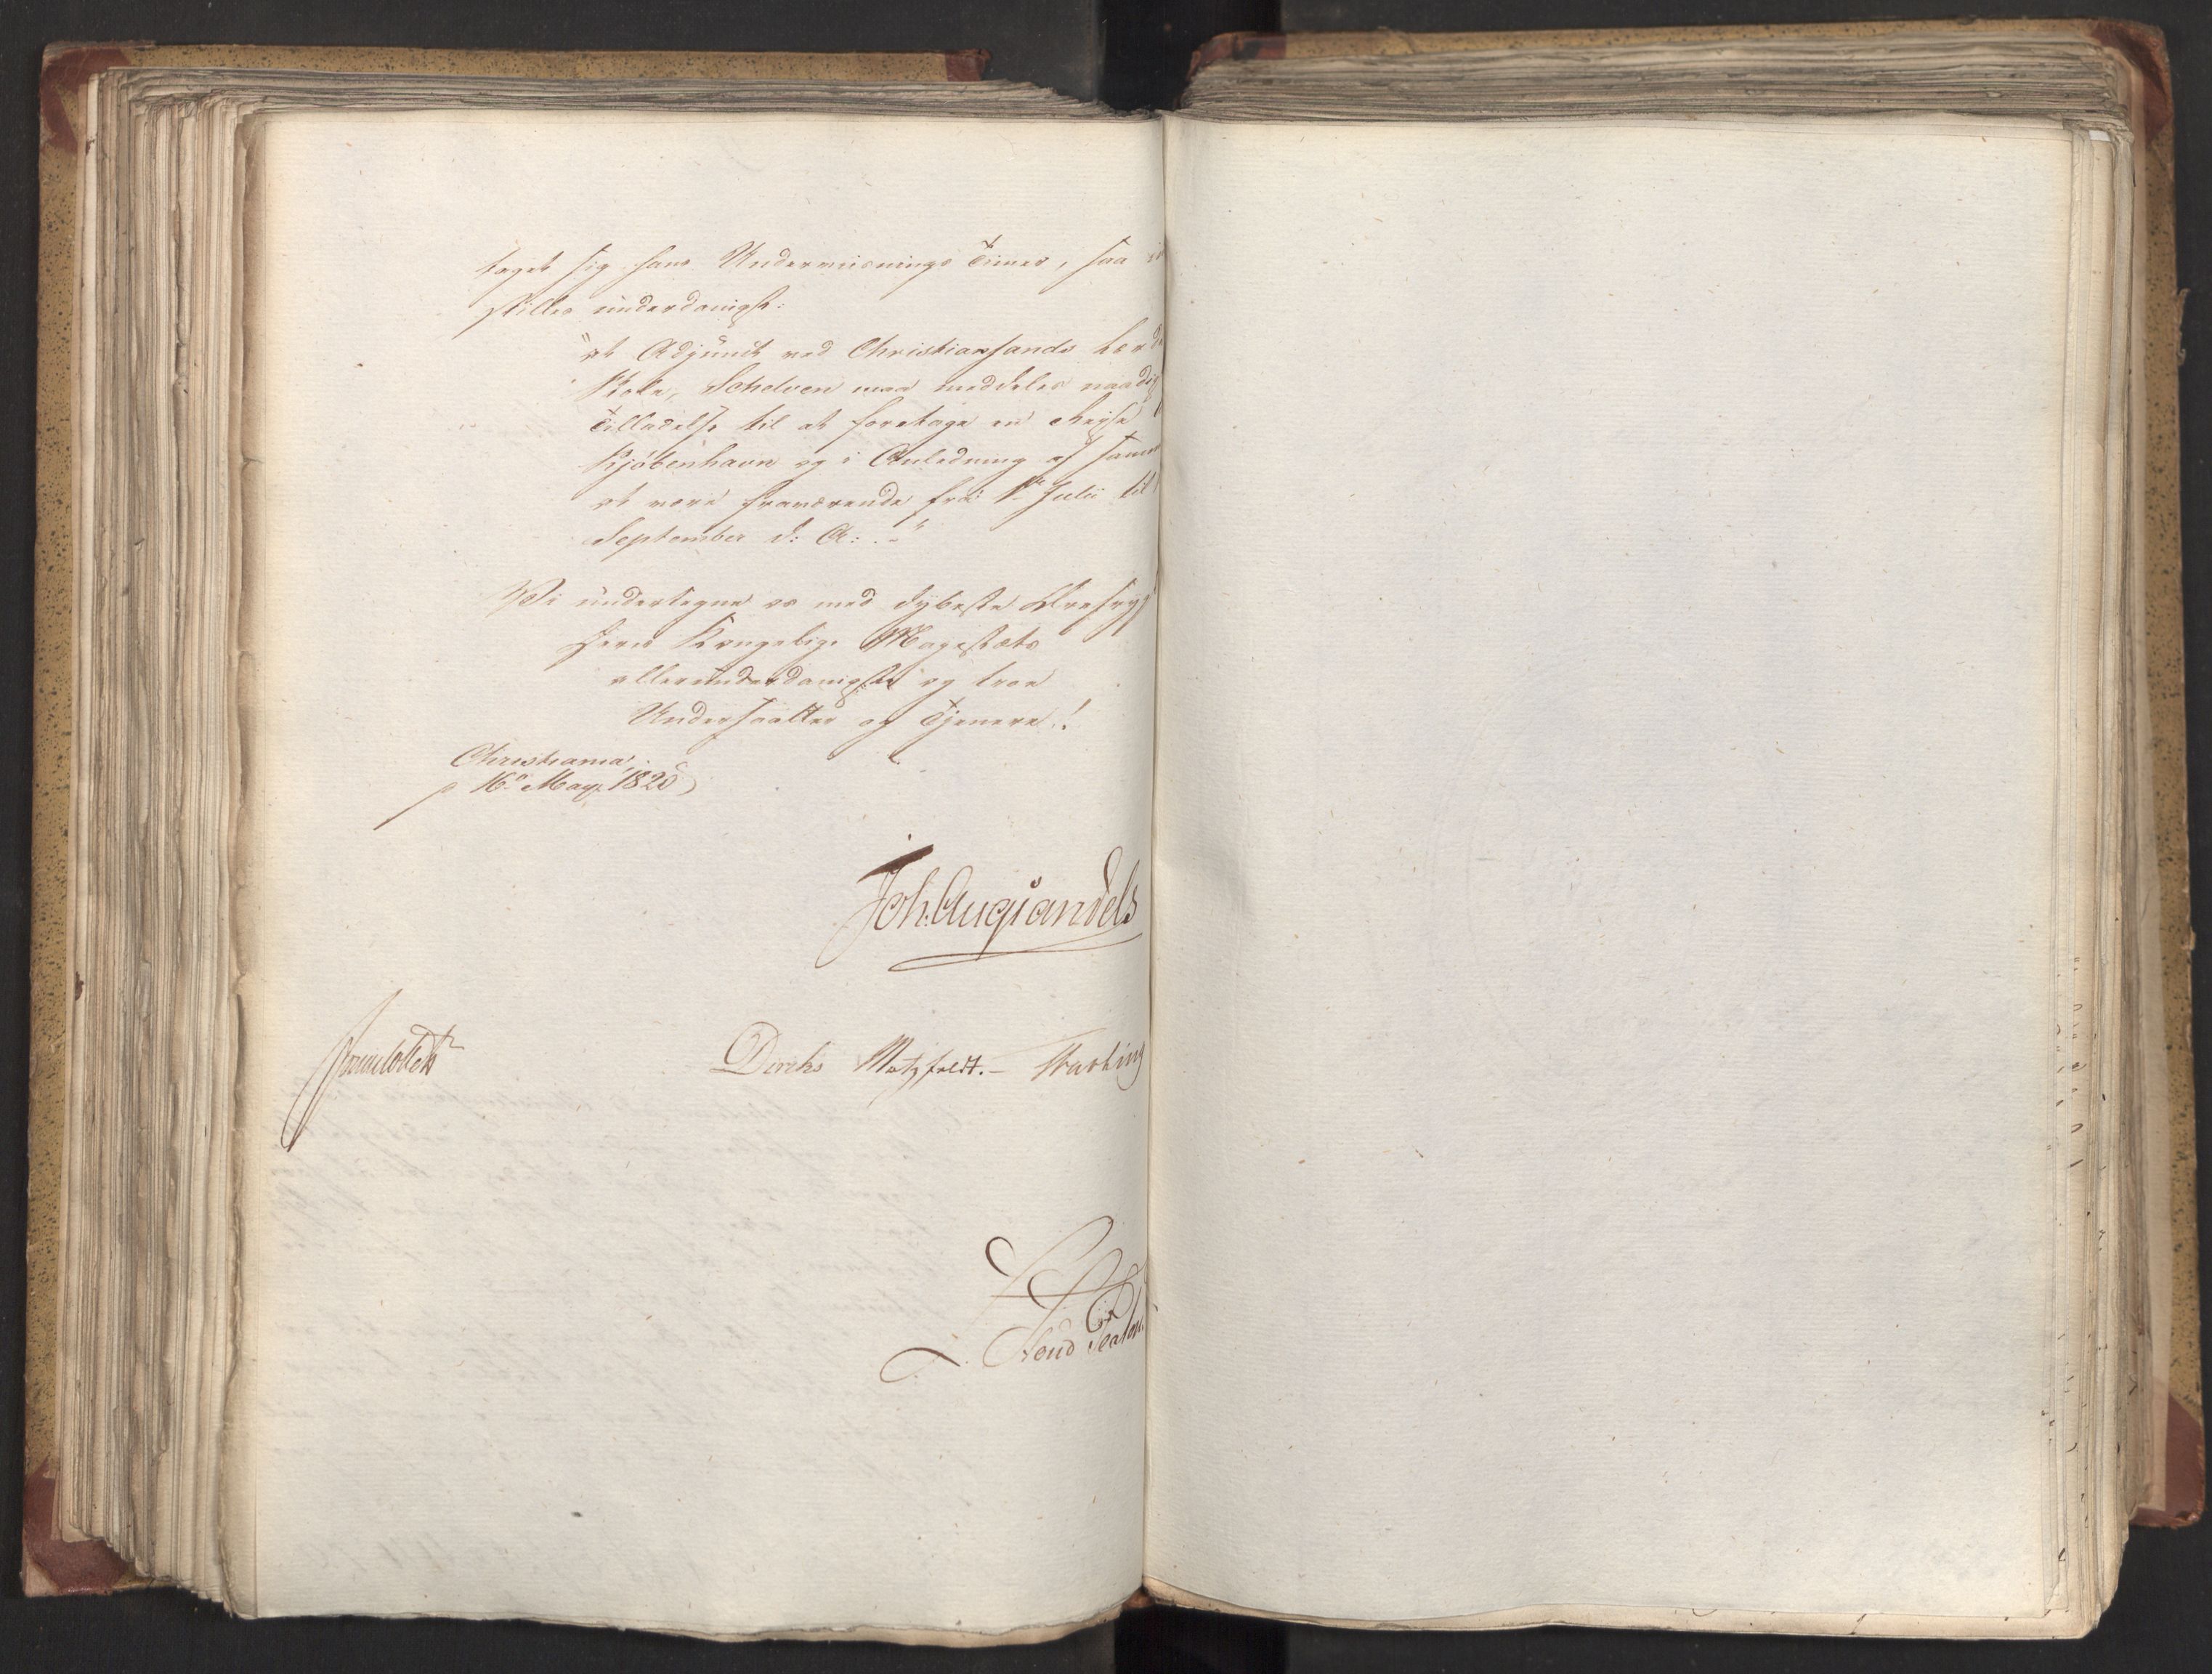 taget sig hans Underviisnings Timer, saa ind
stilles underdanigst:
"at Adjunct ved Christiansands lærde
Skole, Schelven maa meddeles naadigst
Tilladelse til at foretage en Reise til
Kjöbenhavn og i Anledning af samme
at være fraværende fra 1ste Julii til
September d: A: .-"
Vi undertegne os med dybeste Ærefrygt
Deres Kongelige Majestæts
allerunderdanigste og troe
Undersaatter og Tjenere!
Christiania,
16de May 1820
Joh: Aug: Sandels
Sommerfeldt
Diriks Motzfeldt. - Krohg